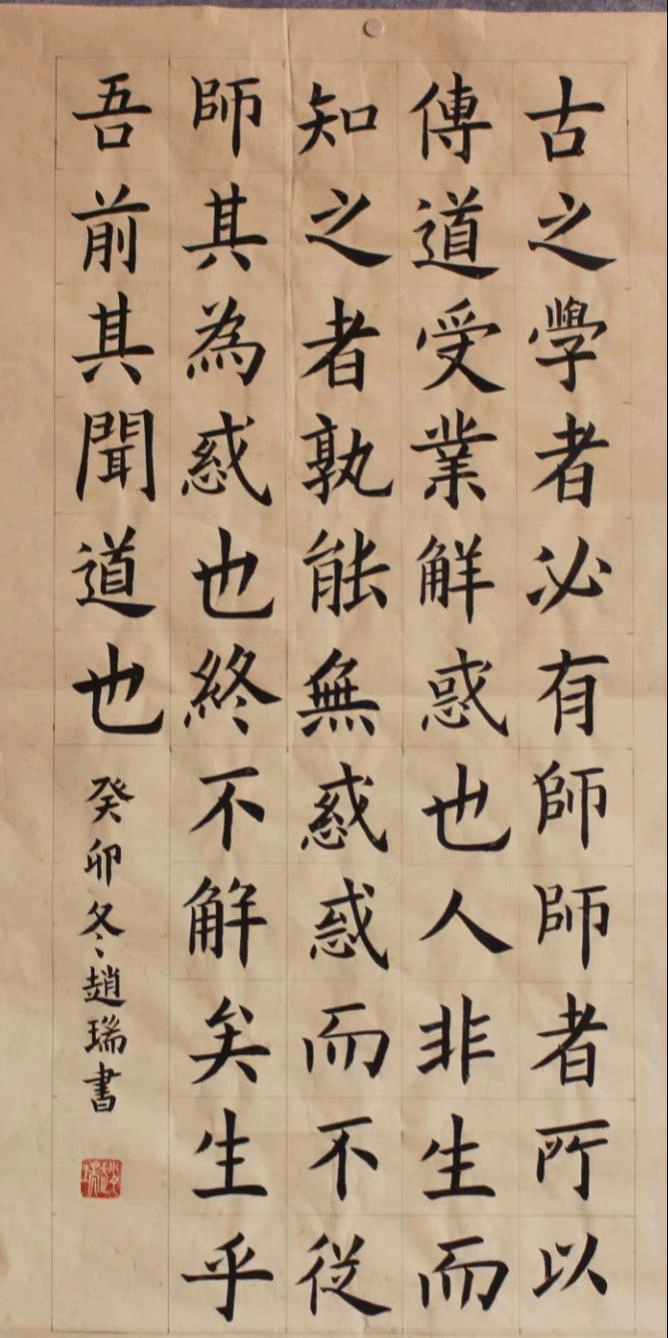 古之學者必有師師者所以
傳道受業解惑也人非生而
知之者孰能無惑惑而不從
師其為惑也終不解矣生乎
吾前其聞道也
癸卯冬趙瑞書
趙瑞